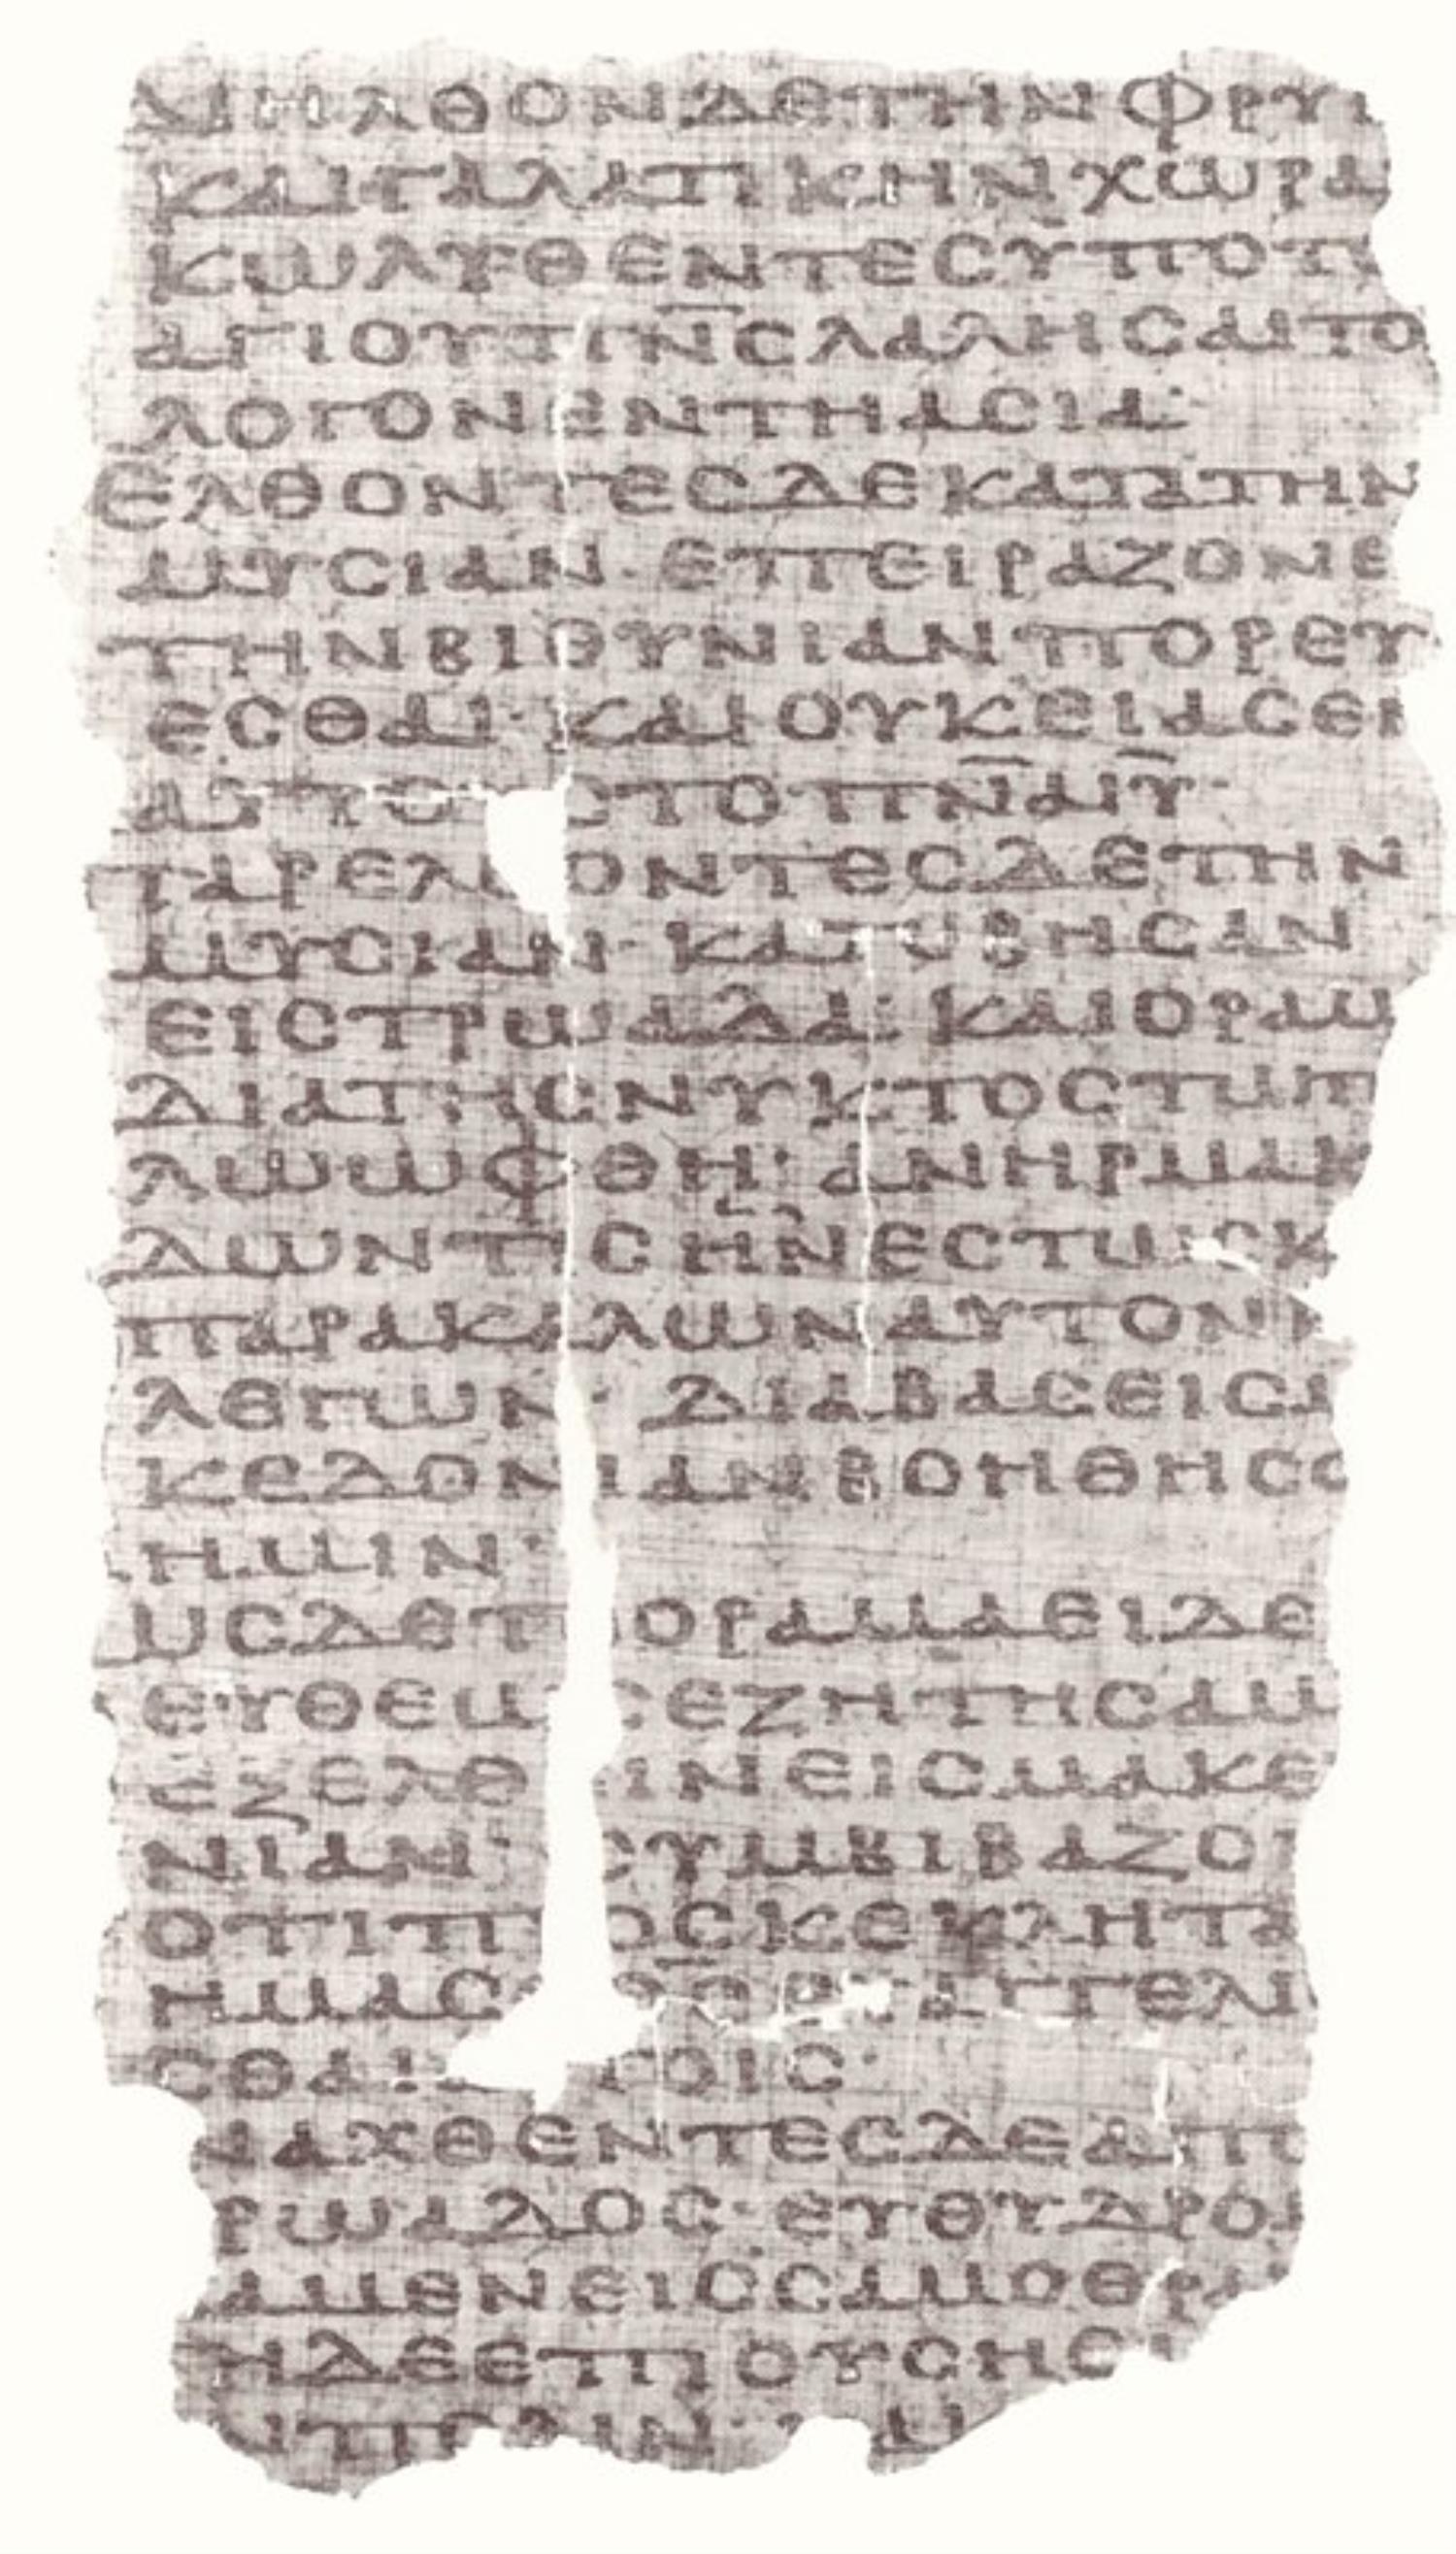 ΔΙΗΛΘΟΝΔΕΤΗΝΦΡΥΓ
ΚΑΙΓΑΛΑΤΙΚΗΝΧΩΡΑ
ΚΩΛΥΘΕΝΤΕCΫΠΟΤ
ΑΓΙΟΥΠΝ̅CΛΑΛΗCΑΙΤΟ
ΛΟΓΟΝΕΝΤΗΑCΙΑ·
ΕΛΘΟΝΤΕCΔΕΚΑΤΑΤΗΝ
ΜΥCΙΑΝ·ΕΠΕΙΡΑΖΟΝΕ
ΤΗΝΒΙΘΥΝΙΑΝΠΟΡΕΥ
ΕCΘΑΙ·ΚΑΙΟΥΚΕΙΑCΕΝ
ΑΥΤΟ CΤΟΠΝ̅ΑΙΥ̅·
ΠΑΡΕΛΘΟΝΤΕCΔΕΤΗΝ
ΜΥCΙΑΝ·ΚΑΤΕΒΗCΑΝ
ΕΙCΤΡΩΑΔΑ·ΚΑΙΟΡΑΜ
ΔΙΑΤΗCΝΥΚΤΟCΤΩΠ
ΛΩΩΦΘΗ·ΑΝΗΡΜΑΚ
ΔΩΝΤΙCΗΝΕCΤΩCΚ
ΠΑΡΑΚΑΛΩΝΑΥΤΟΝΚ
ΛΕΓΩΝ·ΔΙΑΒΑCΕΙC
ΚΕΔΟΝΙΑΝΒΟΗΘΗCΟ
ΗΜΙΝ·
ΩCΔΕΤ ΟΡΑΜΑΕΙΔΕ
ΕΥΘΕΩ CΕΖΗΤΗCΑΜ
ΕΞΕΛΘ ΙΝΕΙCΜΑΚΕ
ΝΙΑΝ· CΥΜΒΙΒΑΖΟ
ΟΤΙΠΡ ΟCΚΕΚΛΗΤΑ
ΗΜΑCΟΘ̅C̅ΕΥΑΓΓΕΛΙ
CΘΑΙ ΤΟΙC·
ΑΧΘΕΝΤΕCΔΕΑΠΟ
ΡΩΑΔΟC·ΕΥΘΥΔΡΟ
ΑΜΕΝΕΙCCΑΜΟΘΡΑ
ΗΔΕΕΠΙΟΥCΗΕΙ
ΠΟΛΙΝ·